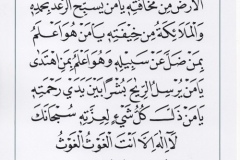 الأَرْضُ مِنْ مَخَافَتِهِ يَا مَنْ يُسَبِّحُ الرَّعْدُ بِحَمْدِهِ
وَالْمَلَائِكَةُ مِنْ خِيفَتِهِ يَا مَنْ هُوَ أَعْلَمُ
بِمَنْ ضَلَّ عَنْ سَبِيلِهِ وَهُوَ أَعْلَمُ بِمَنِ اهْتَدَى
يَا مَنْ يُرْسِلُ الرِّيَاحَ بُشْرًا بَيْنَ يَدَيْ رَحْمَتِهِ
يَا مَنْ ذَلَّ كُلُّ شَيْءٍ لِعِزَّتِهِ سُبْحَانَكَ
لَا إِلٰهَ إِلَّا أَنْتَ الْغَوْثُ الْغَوْثُ